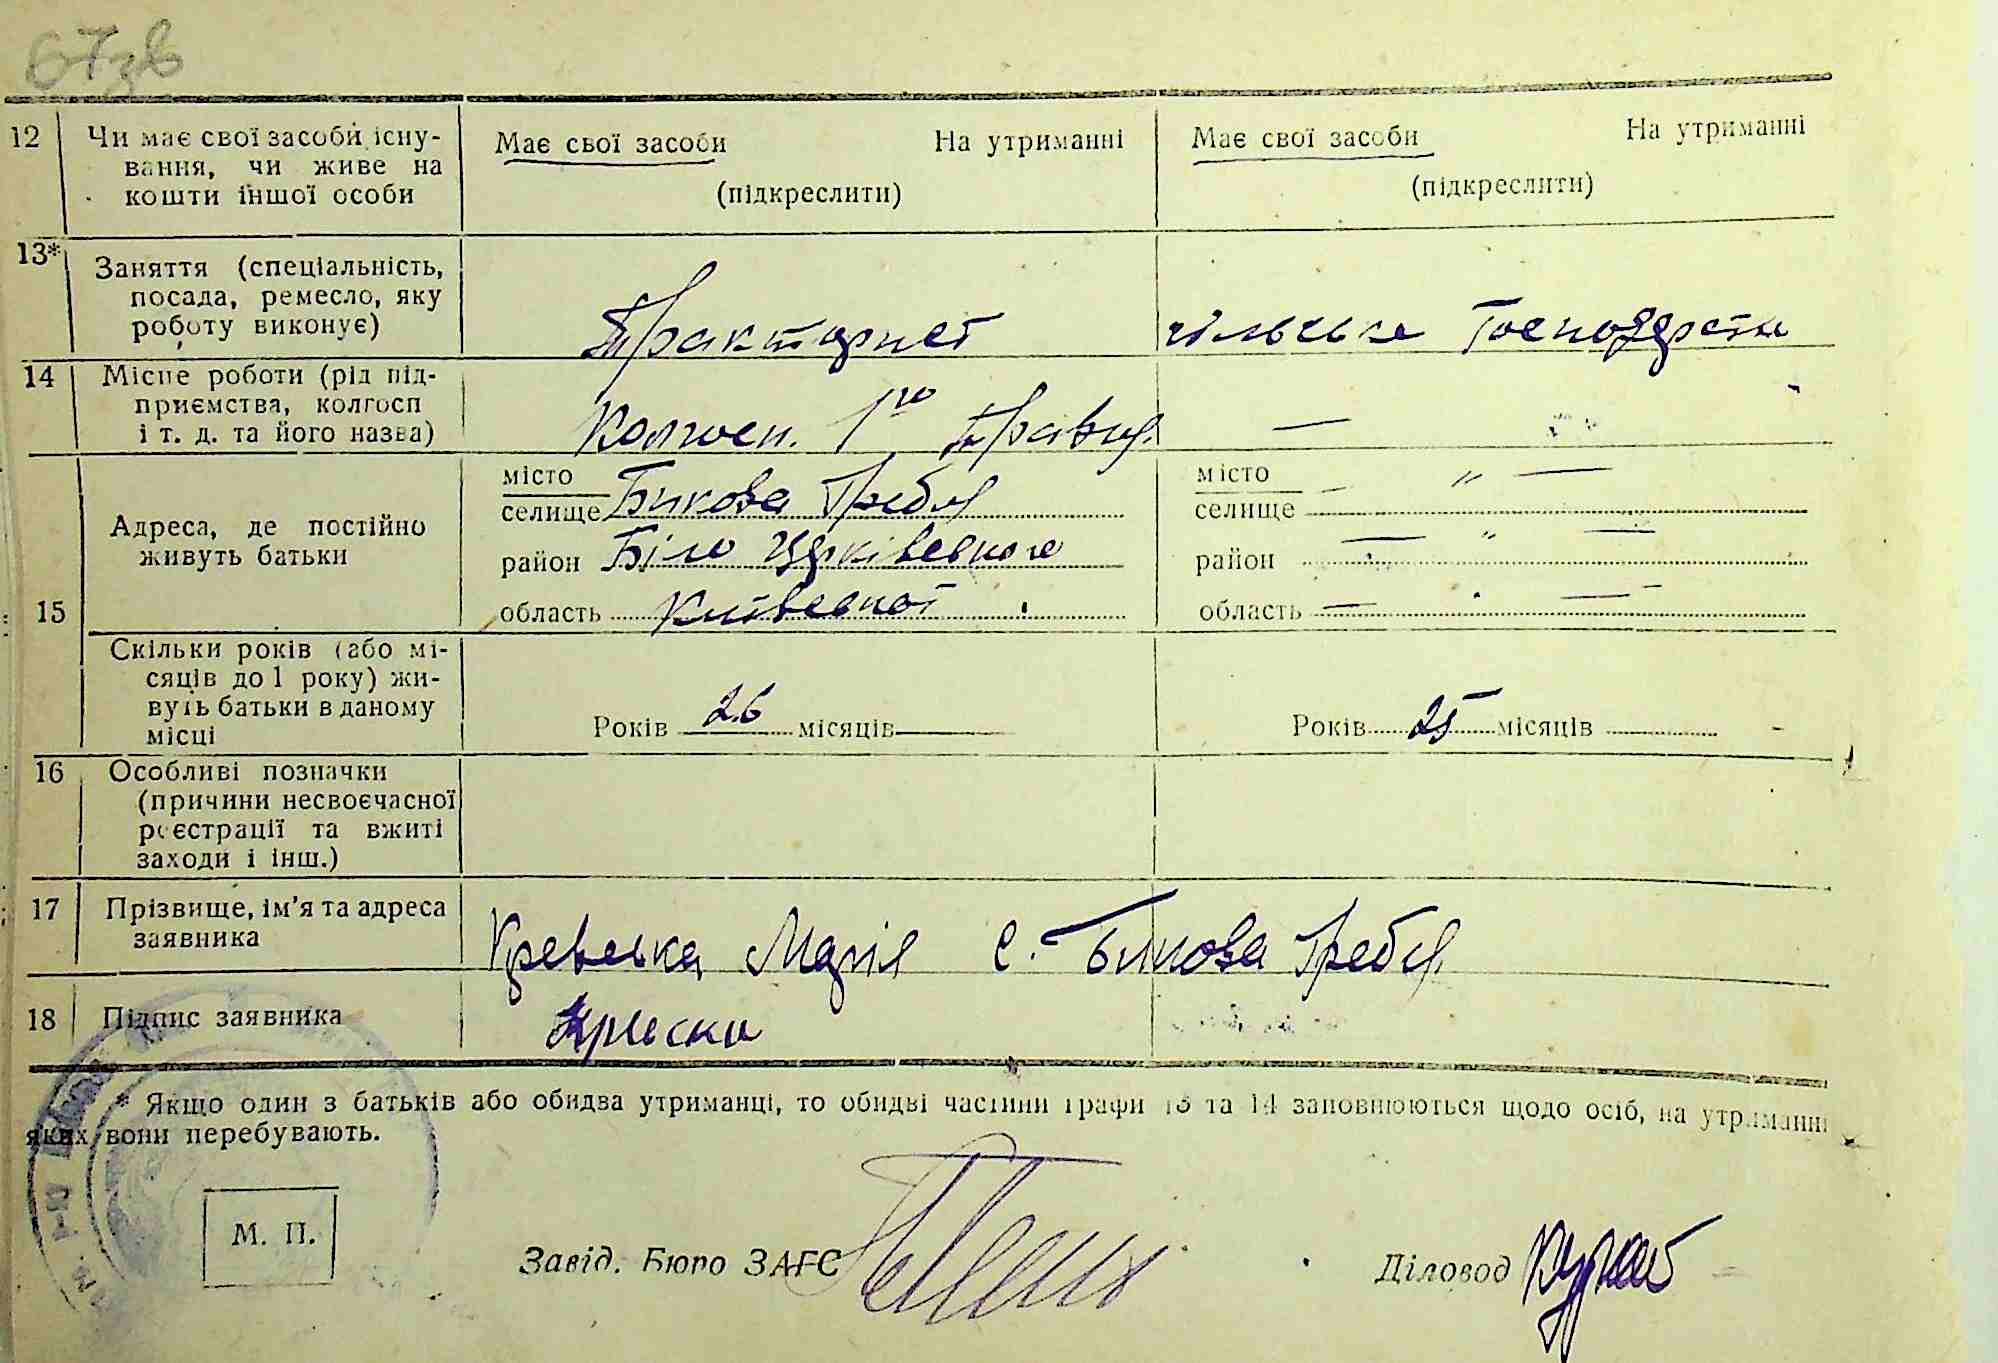 67зв
12 Чи має свої засоби існу-
вання, чи живе на
кошти іншої особи
Має свої засоби На утриманні
(підкреслити)
Має свої засоби На утриманні
(підкреслити)
13* Заняття (спеціальність,
посада, ремесло, яку
роботу виконує)
Тракторист
сільське Господарство
14 Місце роботи (рід під-
приємства, колгосп
і т. д. та його назва)
Колгосп. 1го Травня
—
15 Адреса, де постійно
живуть батьки
місто
селище Бикова Гребля
район Біло Церківського
область Київської
місто — " —
селище
район — " —
область — " —
Скільки років (або мі-
сяців до 1 року) жи-
вуть батьки в даному
місці
Років 26 місяців —
Років 25 місяців
16 Особливі позначки
(причини несвоєчасної
реєстрації та вжиті
заходи і інш.)
17 Прізвище, ім'я та адреса
заявника
Марія с. Бикова Гребля
18 Підпис заявника
* Якщо один з батьків або обидва утриманці, то обидві частини графи 13 та 14 заповнюються щодо осіб, на утриманні
яких вони перебувають.
М. П.
Завід. Бюро ЗАГС
Діловод